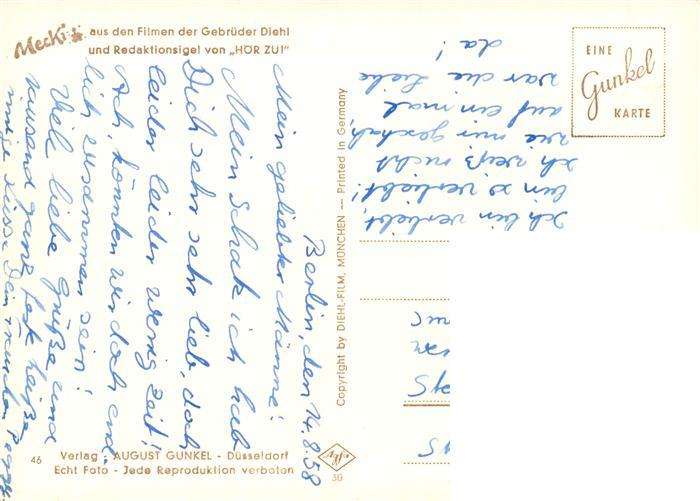 Mecki
aus den Filmen der Gebrüder Diehl
und Redaktionsigel von „HÖR ZU!"
EINE
Gunkel
KARTE
Berlin, den 14.8.58
Mein geliebter Männe!
Mein Schak ich hab
Dich sehr sehr lieb, doch
leider leider wenig Zeit!
Ach, könnten wir doch end-
lich zusammen sein!
Viel liebe Grüße und
tausend ganz
Ich bin verliebt,
bin so verliebt!
Ich weiß nicht
wie mir geschah,
auf einmal
war die Liebe
da!
Copyright by DIEHL-FILM, MÜNCHEN — Printed in Germany
46
Verlag - AUGUST GUNKEL - Düsseldorf
Echt Foto - Jede Reproduktion verboten
30